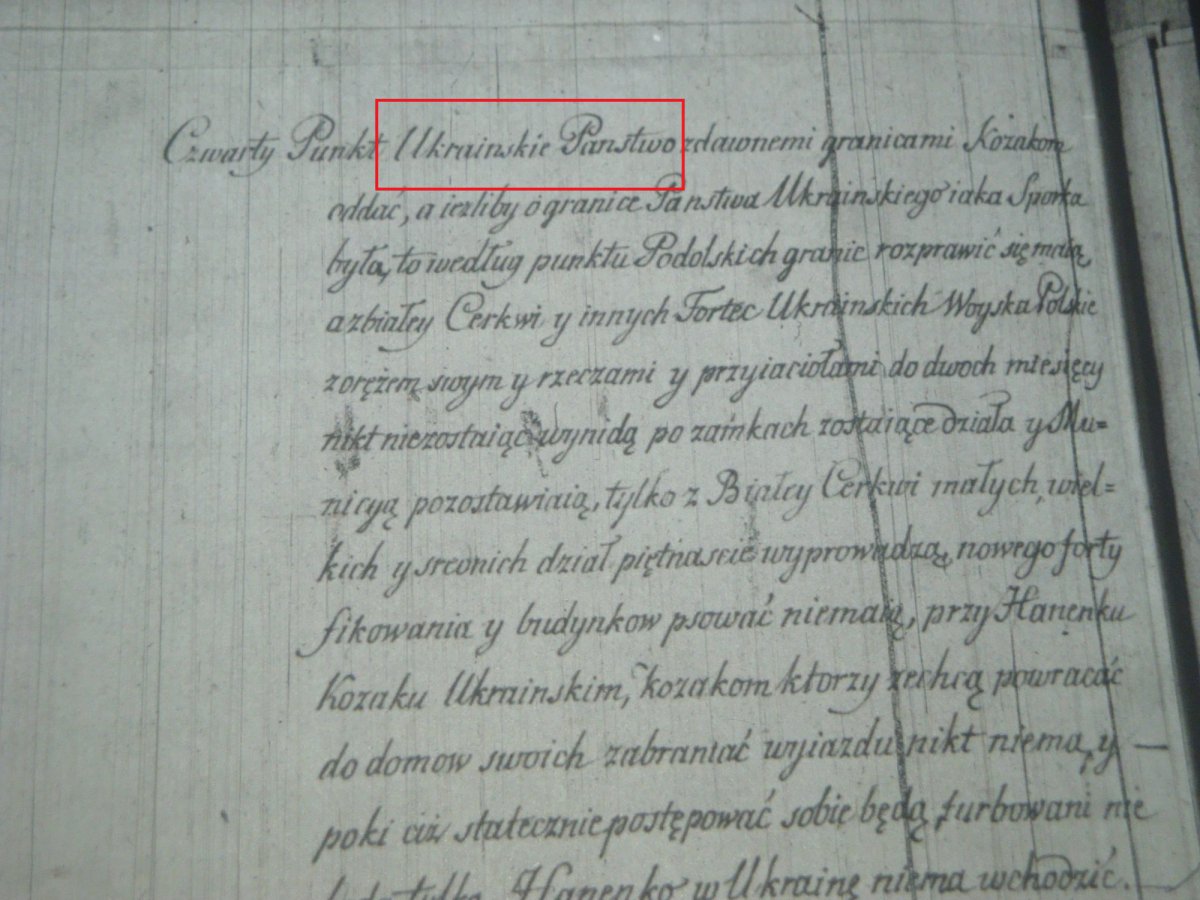 Czwarty Punkt Ukrainskie Państwo zdawnemi granicami Kozakom
oddać, a iezliby o granice Państwa Ukrainskiego iaka Sporka
była, to według punktu Podolskich granic rozprawić się maią,
a z białey Cerkwi y innych Fortec Ukrainskich Woyska Polskie
z orężem swym y rzeczami y przyiaciołami do dwoch miesięcy
nikt niezostaiąc wynidą po zamkach zostaiące działa y Mu=
nicyą pozostawiaią, tylko z Białey Cerkwi małych, wiel=
kich y srednich dział piętnascie wyprowadzą, nowego forty
fikowania y budynkow psować niemaią, przy Hanenku
Kozaku Ukrainskim, kozakom ktorzy zechcą powracać
do domow swoich zabraniać wyiazdu nikt niema, y —
poki ciż statecznie postępować sobie będą, turbowani nie
będą tylko Hanenko w Ukrainę niema wchodzić.